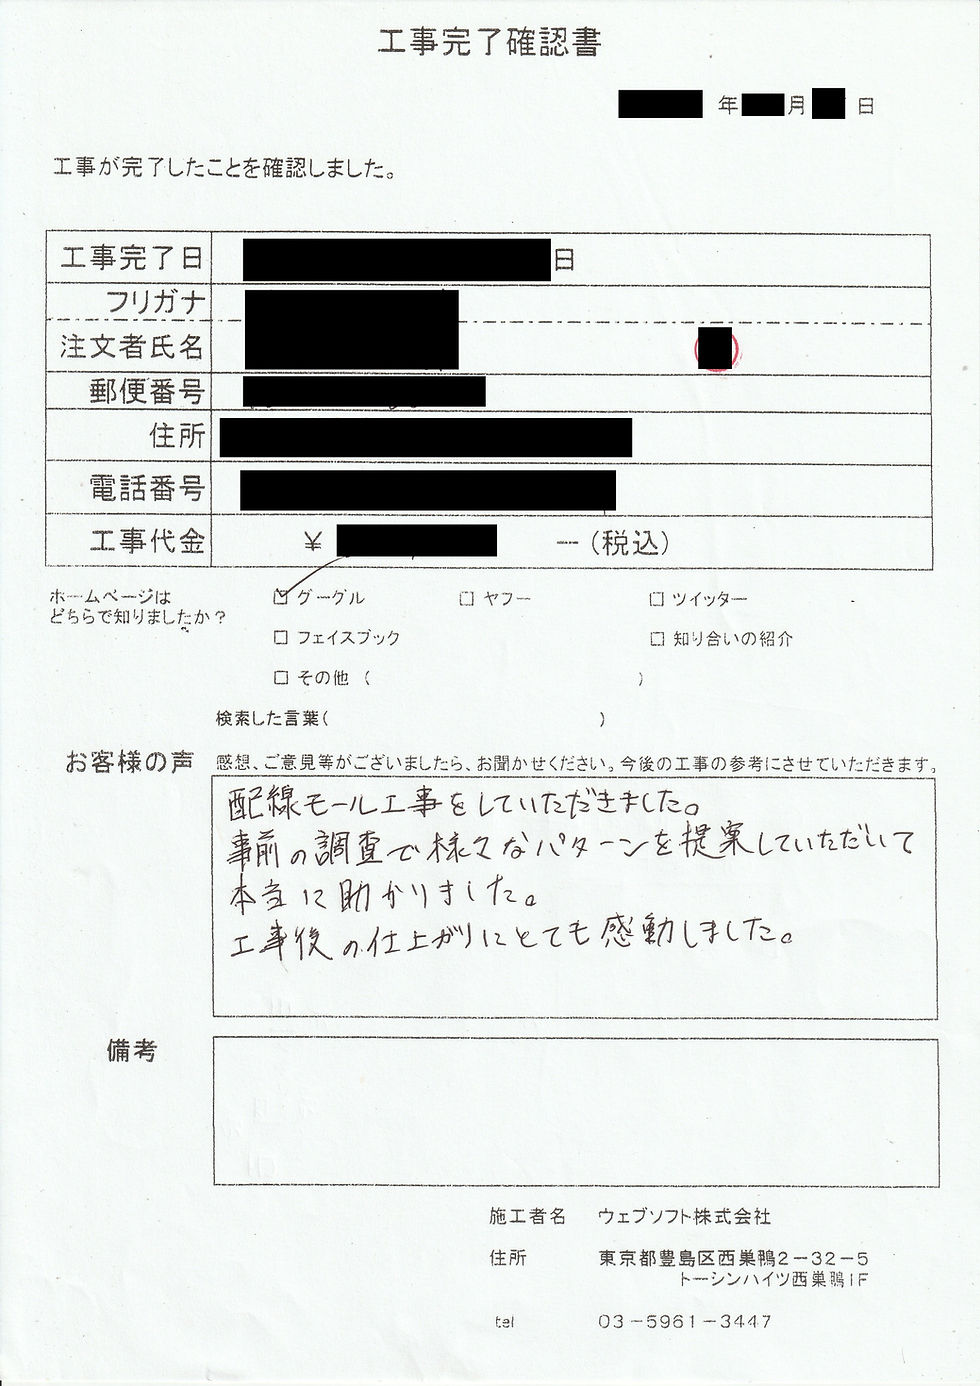 工事完了確認書
年 月 日
工事が完了したことを確認しました。
工事完了日 日
フリガナ
注文者氏名
郵便番号
住所
電話番号
工事代金 ¥ ー(税込)
ホームページは
どちらで知りましたか?
☑ グーグル □ ヤフー □ ツイッター
□ フェイスブック □ 知り合いの紹介
□ その他 ( )
検索した言葉( )
お客様の声 感想、ご意見等がございましたら、お聞かせください。今後の工事の参考にさせていただきます。
配線モール工事をしていただきました。
事前の調査で様々なパターンを提案していただいて
本当に助かりました。
工事後の仕上がりにとても感動しました。
備考
施工者名 ウェブソフト株式会社
住所 東京都豊島区西巣鴨2-32-5
トーシンハイツ西巣鴨1F
tel 03-5961-3447